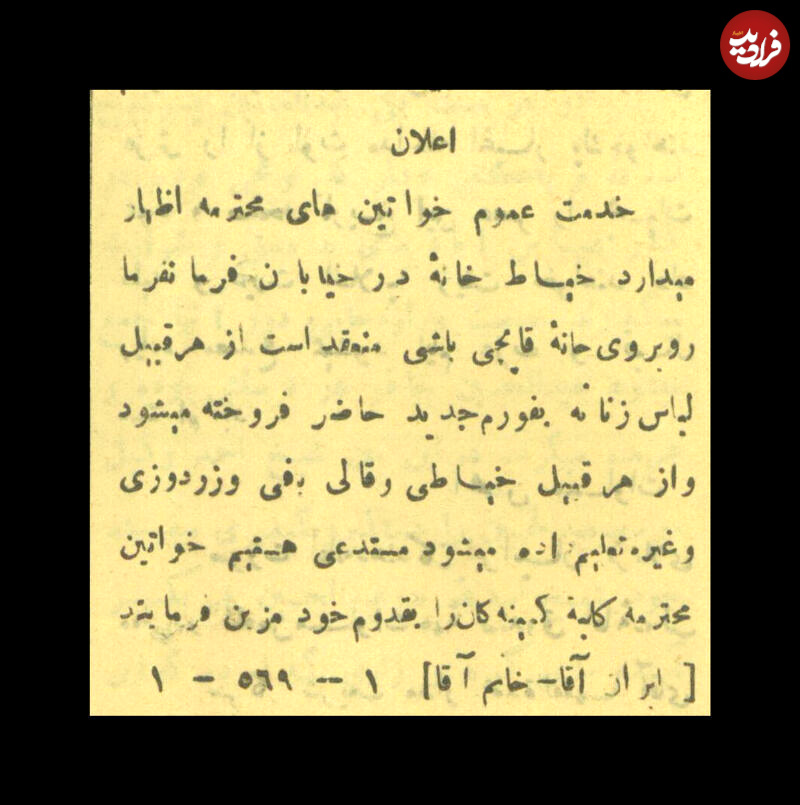 فرادید
اخبار
اعلان
خدمت عموم خواتین های محترمه اظهار
میدارد خیاط خانهٔ در خیابان فرمانفرما
روبروی خانهٔ قاپچی باشی منعقد است از هر قبیل
لباس زنانه بفورم جدید حاضر فروخته میشود
و از هر قبیل خیاطی و قالی بافی و زردوزی
و غیره تعلیم داده میشود مستدعی هستیم خواتین
محترمه کلبهٔ کمینه کان را بقدوم خود مزین فرمایند
[ آقا – خانم آقا] ۱ -- ۵۶۹ – ۱